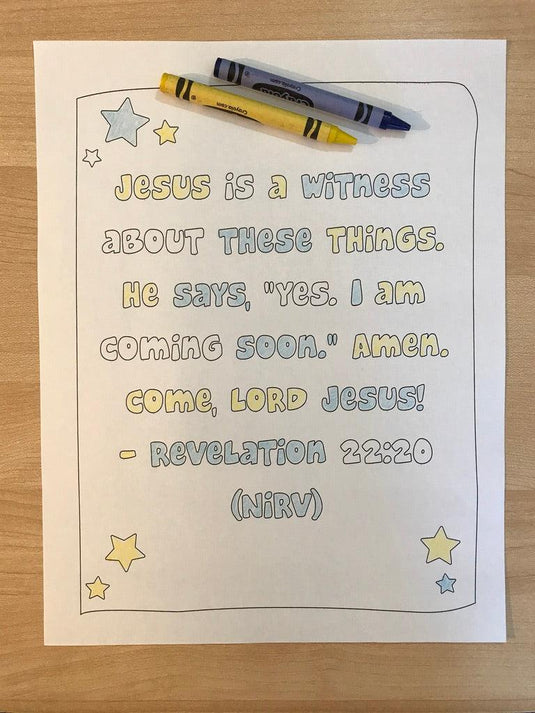 Crayola
Crayola.com
Jesus is a witness
about these things.
He says, "Yes. I am
coming soon." Amen.
Come, Lord Jesus!
- Revelation 22:20
(NiRV)